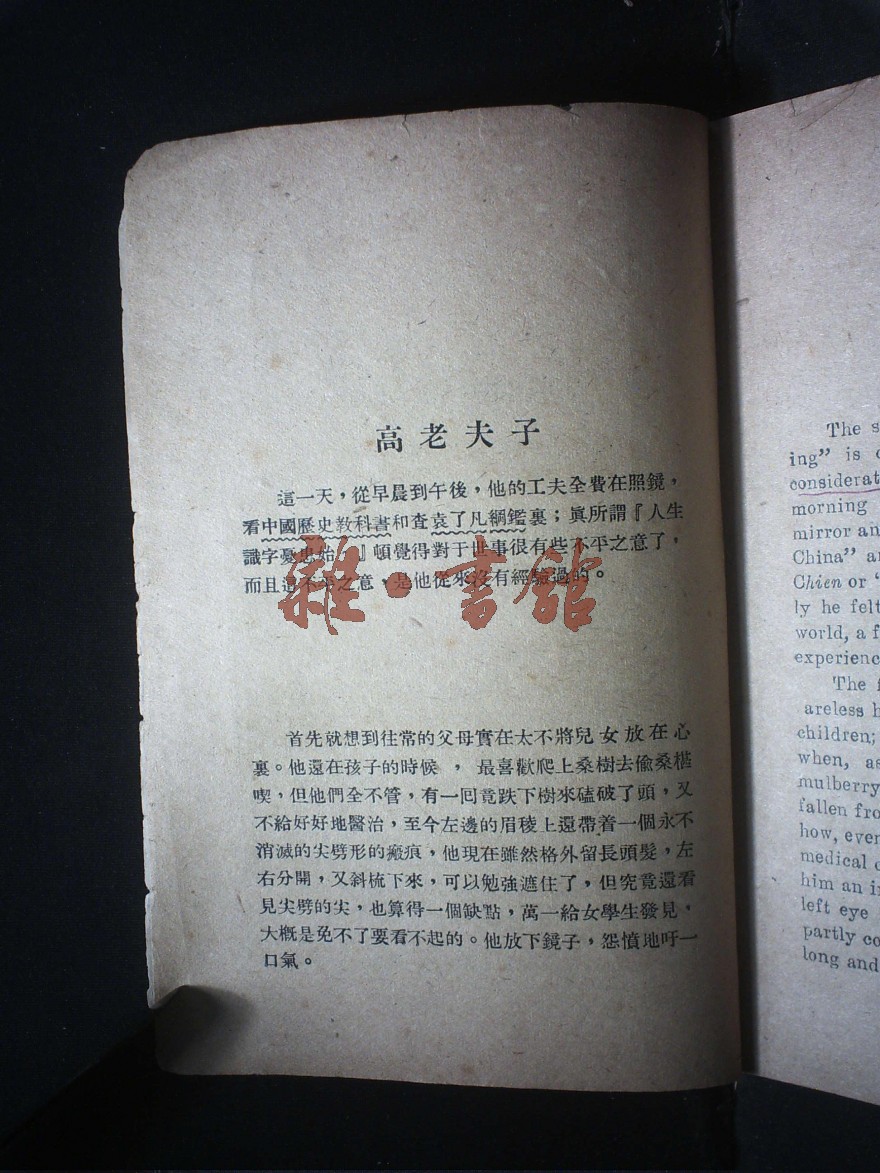 高老夫子
這一天，從早晨到午後，他的工夫全費在照鏡，
看中國歷史教科書和查袁了凡綱鑑裏；眞所謂『人生
識字憂患始，』頓覺得對于世事很有些不平之意了，
而且這不平之意，是他從來沒有經驗過的。
首先就想到往常的父母實在太不將兒女放在心
裏。他還在孩子的時候，最喜歡爬上桑樹去偷桑椹
喫，但他們全不管，有一回竟跌下樹來磕破了頭，又
不給好好地醫治，至今左邊的眉稜上還帶着一個永不
消滅的尖劈形的瘢痕，他現在雖然格外留長頭髮，左
右分開，又斜梳下來，可以勉強遮住了，但究竟還看
見尖劈的尖，也算得一個缺點，萬一給女學生發見，
大概是免不了要看不起的。他放下鏡子，怨憤地吁一
口氣。
雜·書館
The s
ing" is
considerat
morning
mirror an
China" a
Chien or '
ly he felt
world, a f
experienc
The
areless h
children;
when, as
mulberry
fallen fro
how, even
medical
him an i
left eye
partly co
long and